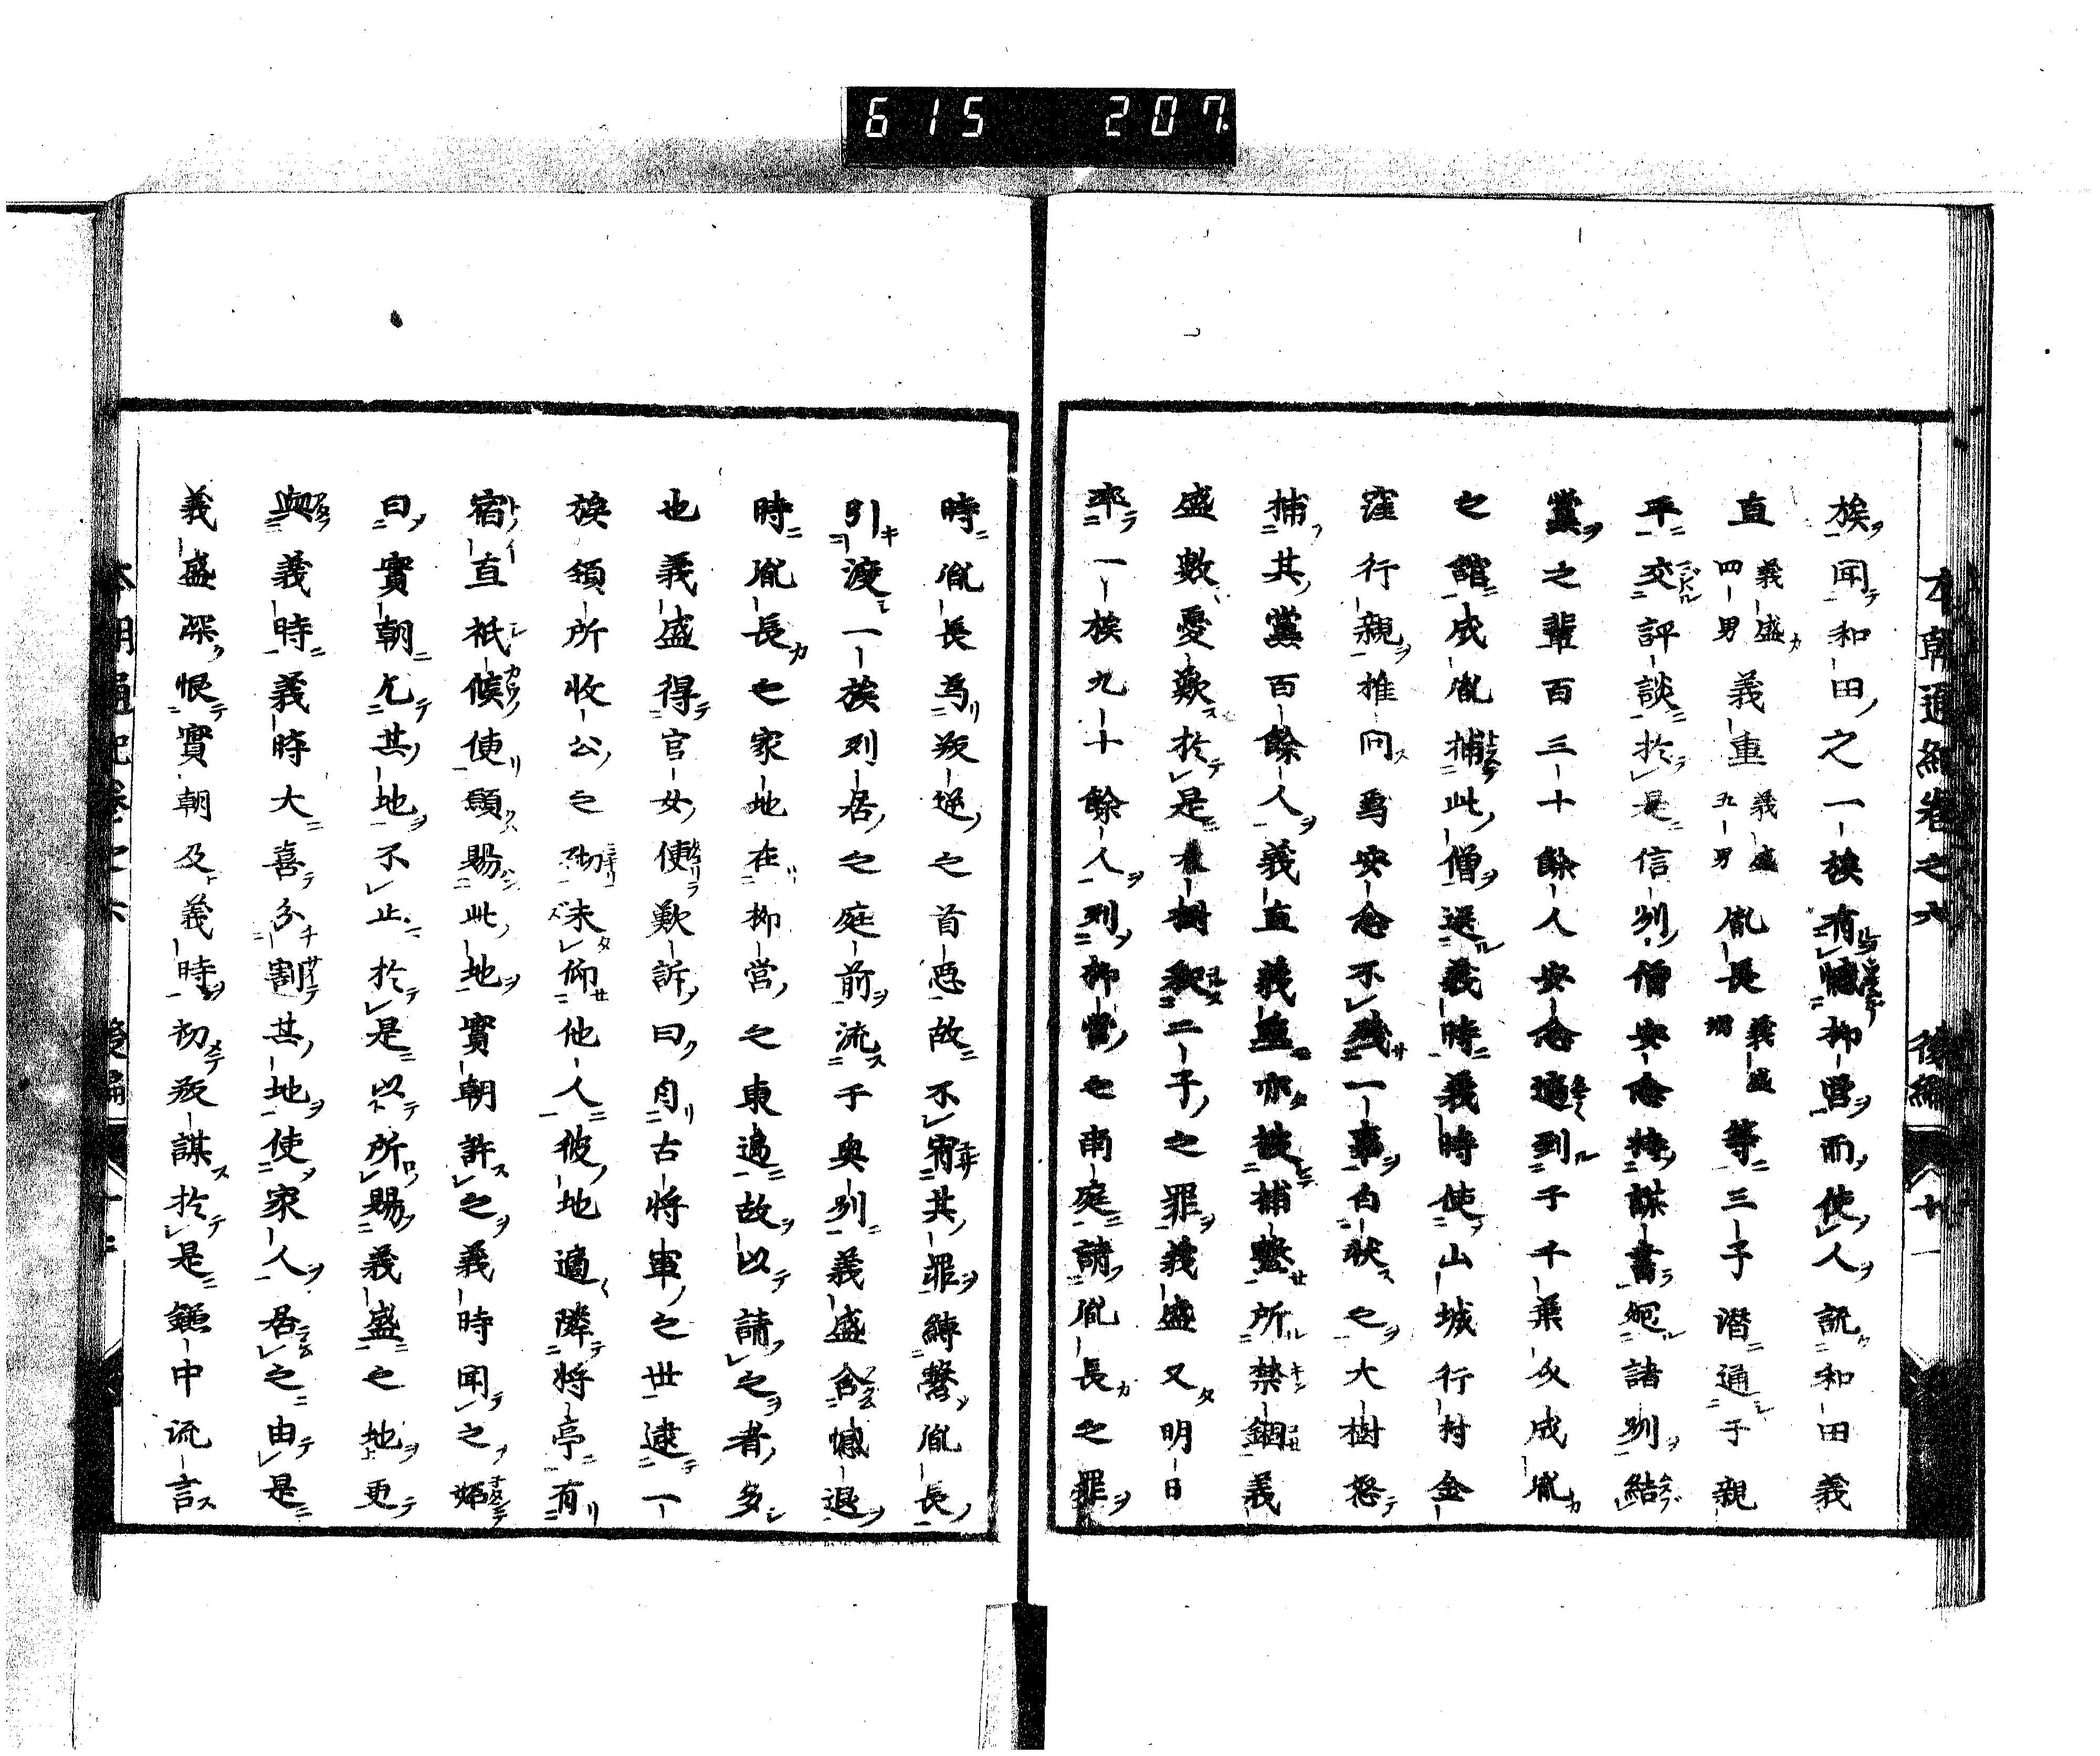 615 207
本朝通紀卷之六 後編 十一
族聞和田之一族有憾柳營而使人説和田義
直義盛四男義重義盛五男胤長義盛甥等三子潛通于親
平交評談於是信州僧安念持謀書廻諸州結
黨之輩百三十餘人安念適到于千葉介成胤
之舘成胤捕此僧送義時義時使山城行村金
窪行親推問焉安念不殘一事白状之大樹怒
捕其黨百餘人義直義重亦被捕繫所禁錮義
盛數憂歎於是大樹釋二子之罪義盛又明日
率一族九十餘人列柳營之南庭請胤長之罪
時胤長為叛逆之首惡故不宥其罪縛繫胤長
引渡一族列居之庭前流于奥州義盛含憾退
時胤長之家地在柳營之東邊故以請之者多
也義盛得官女使歎訴曰自古將軍之世逮一
族領所收公之砌未仰他人彼地適隣將亭有
宿直祗候使願賜此地實朝許之義時聞之妬
曰實朝乞其地不止於是以所賜義盛之地更
與義時義時大喜分割其地使家人居之由是
義盛深恨實朝及義時初叛謀於是鎌中流言
本朝通紀卷之六 後編 十二